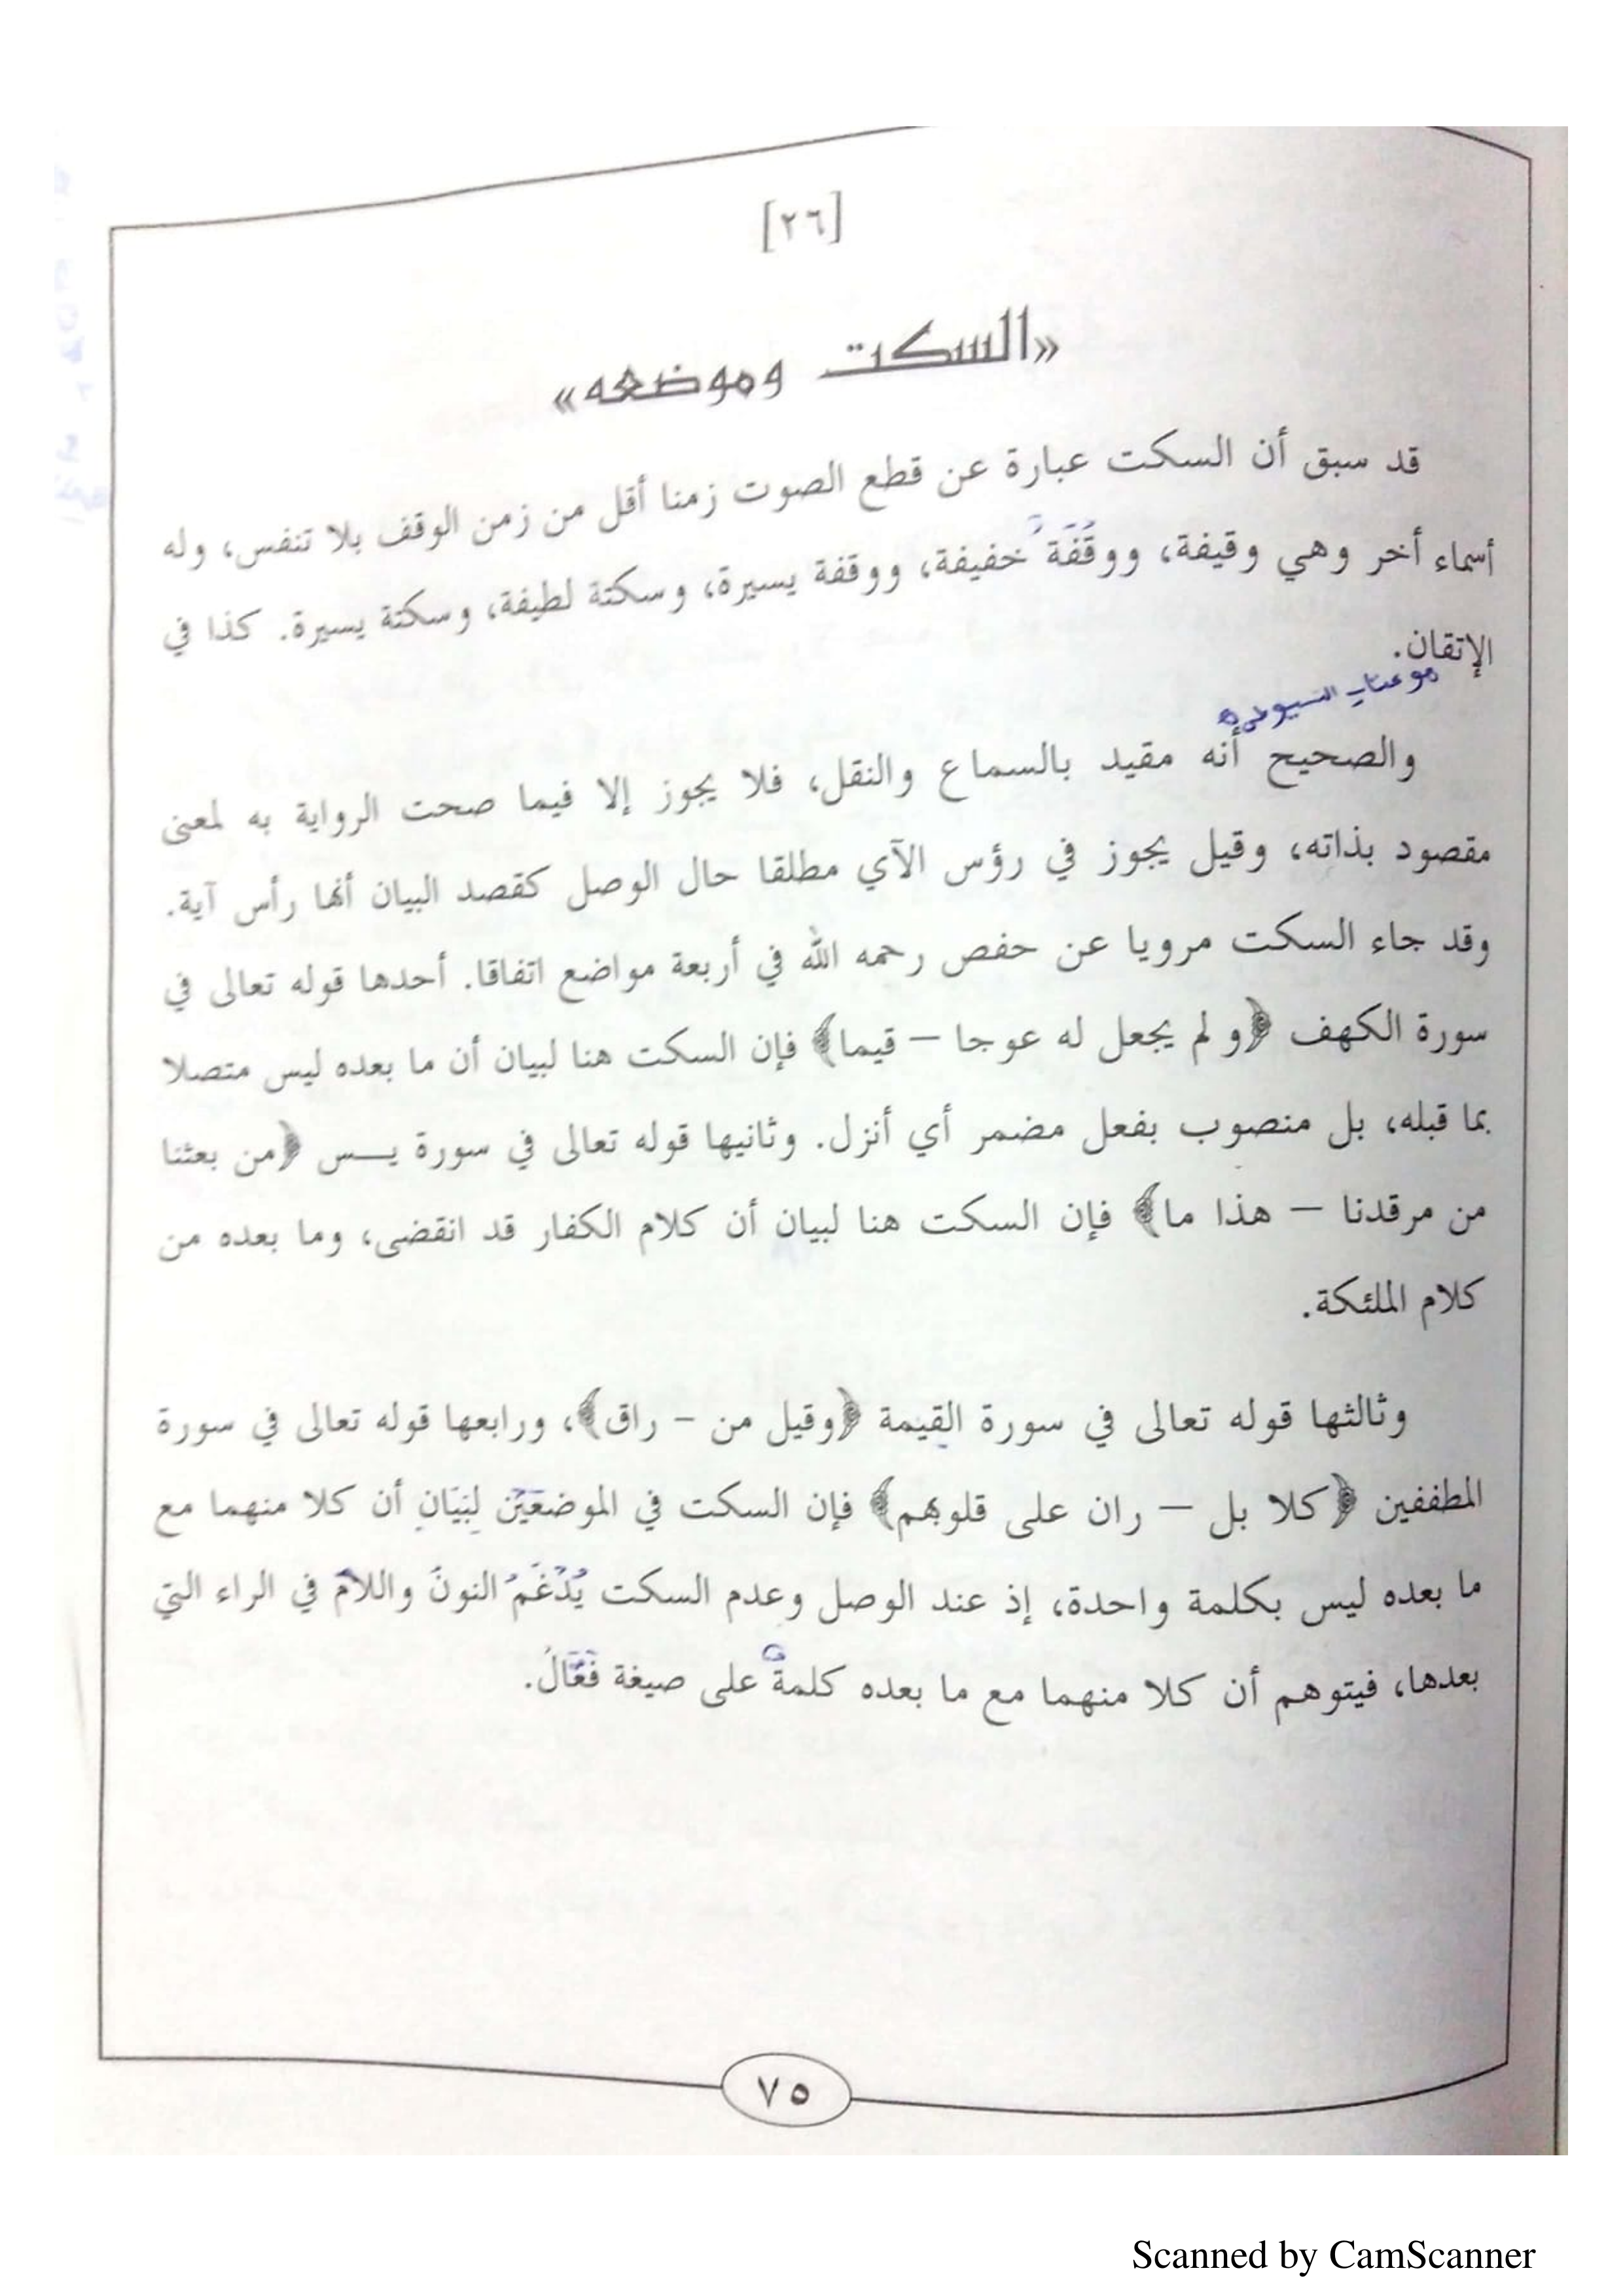 [٢٦]
«السكت وموضعه»
قد سبق أن السكت عبارة عن قطع الصوت زمنا أقل من زمن الوقف بلا تنفس، وله
أسماء أخر وهي وقيفة، ووقْفَة خفيفة، ووقفة يسيرة، وسكتة لطيفة، وسكتة يسيرة. كذا في
الإتقان.
السيوطي
والصحيح أنه مقيد بالسماع والنقل، فلا يجوز إلا فيما صحت الرواية به لمعنى
مقصود بذاته، وقيل يجوز في رؤس الآي مطلقا حال الوصل كقصد البيان أنها رأس آية.
وقد جاء السكت مرويا عن حفص رحمه الله في أربعة مواضع اتفاقا. أحدها قوله تعالى في
سورة الكهف ﴿و لم يجعل له عوجا – قيما﴾ فإن السكت هنا لبيان أن ما بعده ليس متصلا
بما قبله، بل منصوب بفعل مضمر أي أنزل. وثانيها قوله تعالى في سورة يــس ﴿من بعثنا
من مرقدنا – هذا ما﴾ فإن السكت هنا لبيان أن كلام الكفار قد انقضى، وما بعده من
كلام الملئكة.
وثالثها قوله تعالى في سورة القيمة ﴿وقيل من – راق﴾، ورابعها قوله تعالى في سورة
المطففين ﴿كلا بل – ران على قلوبهم﴾ فإن السكت في الموضعَيْن لِبَيَانِ أن كلا منهما مع
ما بعده ليس بكلمة واحدة، إذ عند الوصل وعدم السكت يُدْغَمُ النونُ واللامُ في الراء التي
بعدها، فيتوهم أن كلا منهما مع ما بعده كلمةٌ على صيغة فَعَّالُ.
٧٥
Scanned by CamScanner